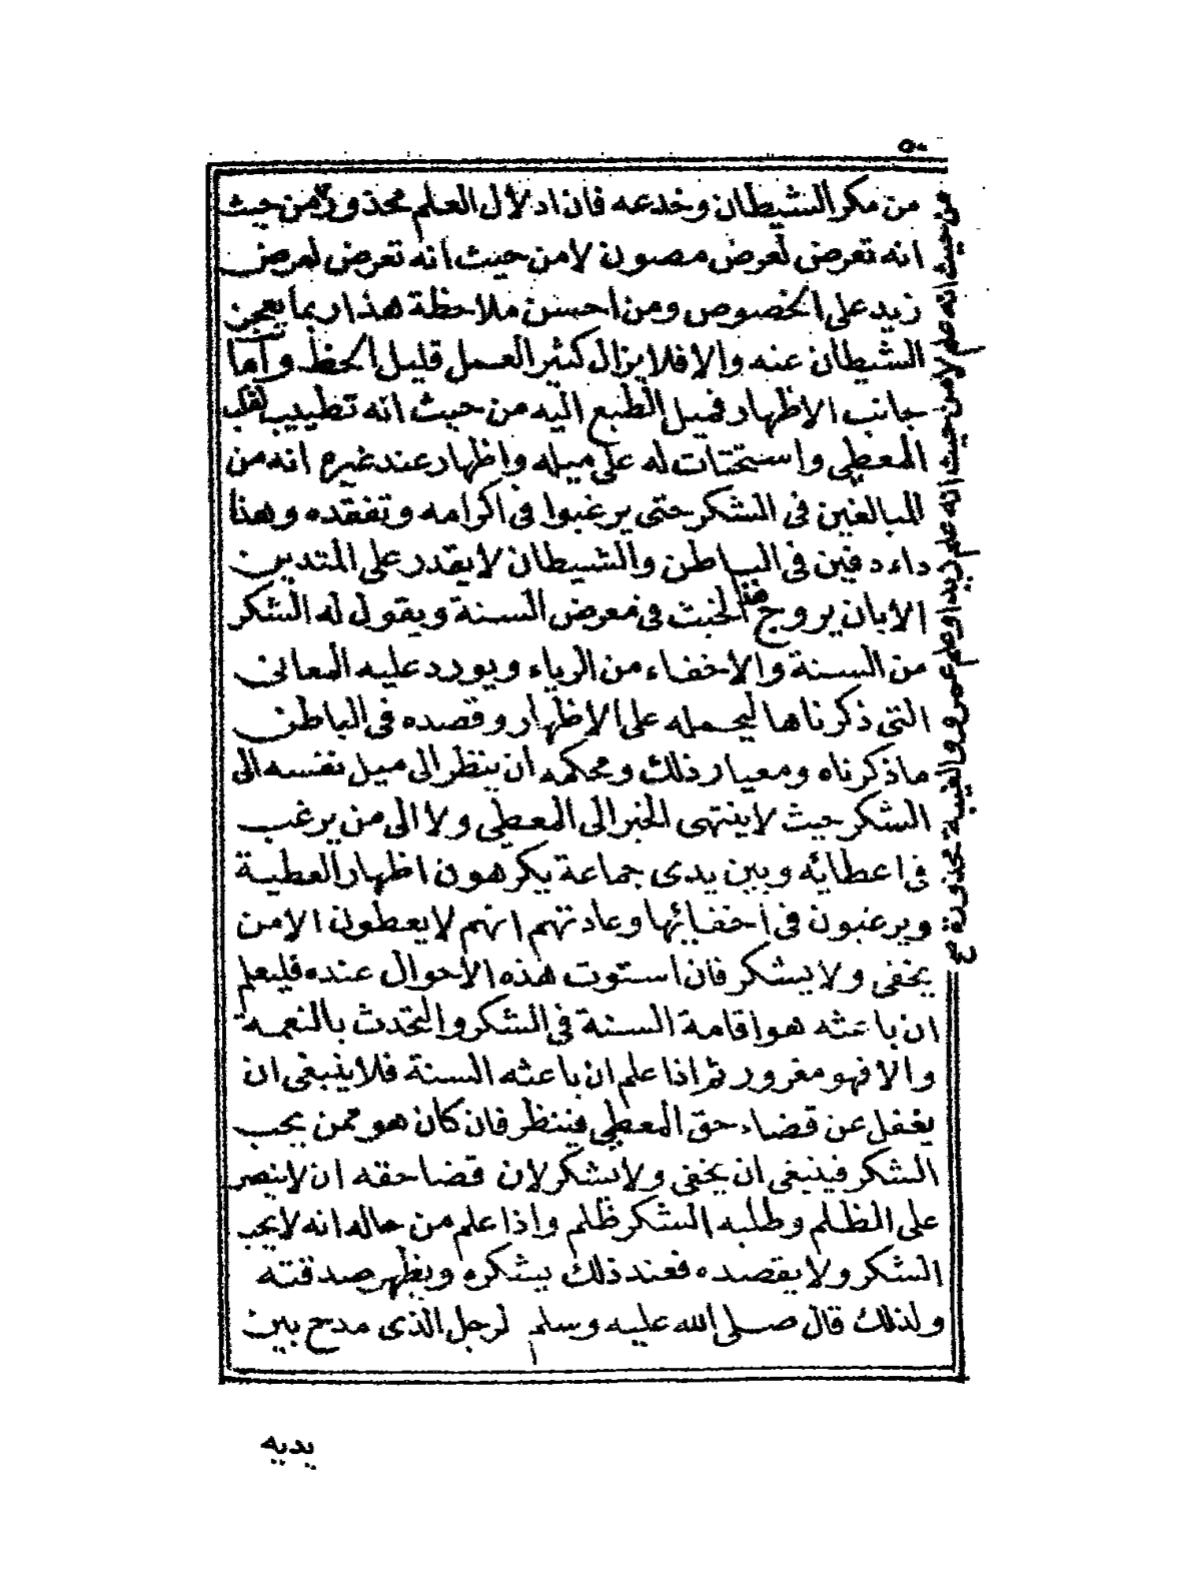 ٥٠
من مكر الشيطان وخدعه فان اذلال العلم محذور لا من حيث
انه تعرض لعرض مصون لا من حيث انه تعرض لعرض
زيد على الخصوص ومن احسن ملاحظة هذا ربما يعجز
الشيطان عنه والا فلا يزال كثير العمل قليل الحظ واما
جانب الاظهار فميل الطبع اليه من حيث انه تطييب لقلب
المعطي واستحثاث له على ميله واظهار عند غيره انه من
المبالغين في الشكر حتى يرغبوا في اكرامه وتفقده وهذا
داء دفين في الباطن والشيطان لا يقدر على المتدين
الا بان يروج هذا الخبث في معرض السنة ويقول له الشكر
من السنة والاخفاء من الرياء ويورد عليه المعاني
التي ذكرناها ليحمله على الاظهار وقصده في الباطن
ما ذكرناه ومعيار ذلك ومحكمه ان ينظر الى ميل نفسه الى
الشكر حيث لا ينتهى الخبر الى المعطي ولا الى من يرغب
في اعطائه وبين يدى جماعة يكرهون اظهار العطية
ويرغبون في اخفائها وعادتهم انهم لا يعطون الا من
يخفى ولا يشكر فان استوت هذه الاحوال عنده فليعلم
ان باعثه هو اقامة السنة في الشكر والتحدث بالنعمة
والا فهو مغرور ثم اذا علم ان باعثه السنة فلا ينبغى ان
يغفل عن قضاء حق المعطي فينظر فان كان هو ممن يحب
الشكر فينبغى ان يخفى ولا يشكر لان قضا حقه ان لا ينصر
على الظلم وطلبه الشكر ظلم واذا علم من حاله انه لا يحب
الشكر ولا يقصده فعند ذلك يشكره ويظهر صدقته
ولذلك قال صلى الله عليه وسلم لرجل الذى مدح بين
من حيث انه علم لا من حيث انه علم زيد او علم عمرو والغيبة محذورة صح
يديه